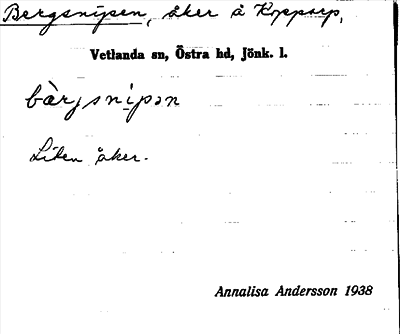 Bergsnipen, åker å Kopparp,
Vetlanda sn, Östra hd, Jönk. l.
bàrjsnipən
Liten åker.
Annalisa Andersson 1938